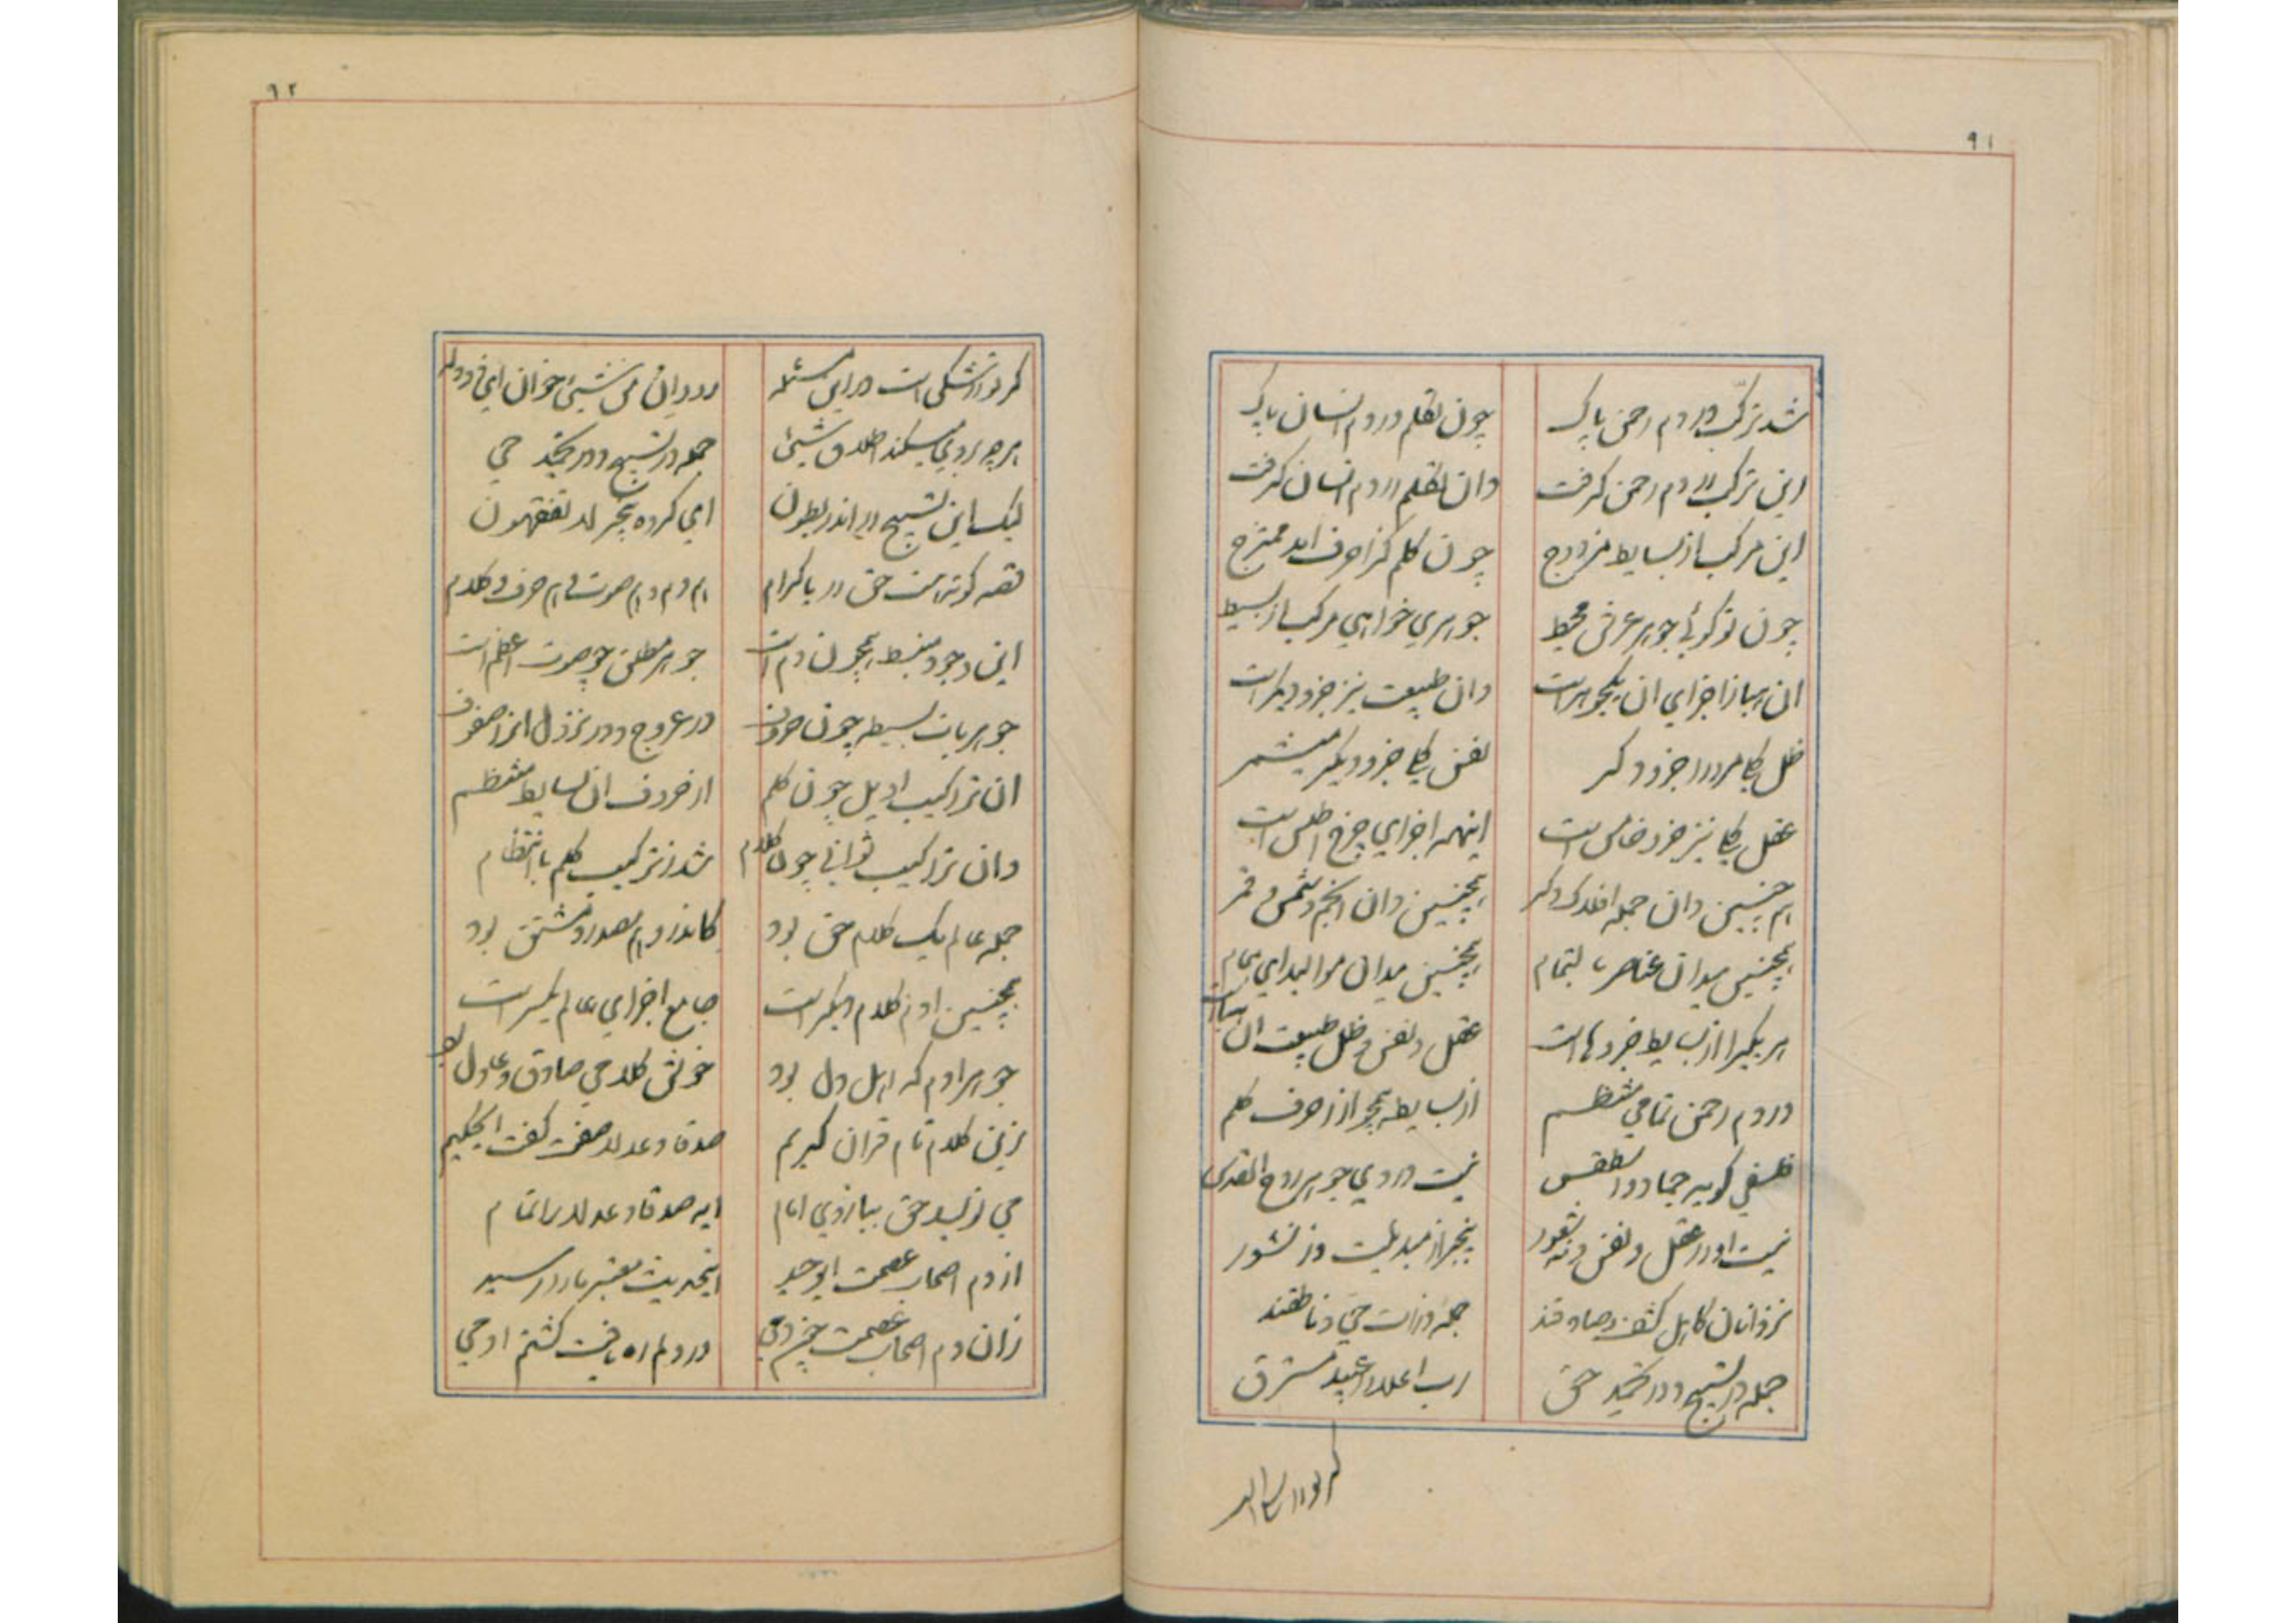 ۹۱
شد ترکب در دم رحمن پاک چون تکلم در دم انسان پاک
این ترکب در دم رحمن گرفت وان تکلم در دم انسان گرفت
این مرکب از بسایط مزدوج چون کلم کز احرف اید ممتزج
چون تو گوئی جوهر عرش محیط جوهری خواهی مرکب از بسیط
ان هبا ز اجزای ان یکجوهر است وان طبیعت نیز جزو دیگر است
ظل یکی مر ورا جزو دگر نفس یکی جزو دیگر میشمر
عقل یکی نیز جزو خامس است اینهمه اجزای چرخ اطلس است
هم چنین دان جمله افلاک دگر همچنین دان انجم و شمس و قمر
همچنین میدان عناصر بتمام همچنین میدان موالید ای همام
هر یکی را از بسایط جزوهاست عقل و نفس و ظل طبیعت ان هباست
در دم رحمن تمامی منتظم از بسایط همچو از احرف کلم
فلسفی گوید جماد و اسطقس نیست در وی جوهر روح القدس
نیست او را عقل و نفس و نه شعور بیخبر از مبدئست و ز نشور
نزد انان کاهل کشف و صادقند جمله ذرات حی و ناطقند
جمله در تسبیح و در تحمید حق رب اعلا را عبید مسترق
گر تو را
۹۲
گر تو را شکی است در این مسئله رو و ان من شیئ خوان این ده دله
هر چه بر وی میکند اطلاق شیئ جمله در تسبیح و در تحمید حی
لیک این تسبیح را اندر بطون ای گروه بیخبر لا تفقهون
قصه کوته هست حق را با کرام هم دم و هم صوت و هم حرف و کلام
این وجود منبسط همچون دم است جوهر مطلق چو صوت اعظم است
جوهریات بسیطه چون حروف در عروج و در نزول انرا صفوف
ان تراکیب اویل چون کلم از حروف ان بسایط منتظم
وان تراکیب ثوانی چون کلام شد ز ترکیب کلم با انتظام
جمله عالم یک کلام حق بود کاندر و هم مصدر و مشتق بود
همچنین ادم کلام دیگر است جامع اجزای عالم یکسر است
جوهر ادم که اهل دل بود خوش کلامی صادق و عادل بود
زین کلام تام قران کریم صدقا و عدلا صفت گفت ای حکیم
می نویسد حق ببازوی امام ایه صدقا و عدلا را تمام
از دم اصحاب عصمت ای وحید اینحدیث معتبر ما را رسید
زان دم اصحاب عصمت چیزکی در دلم ره یافت گشتم اوحی